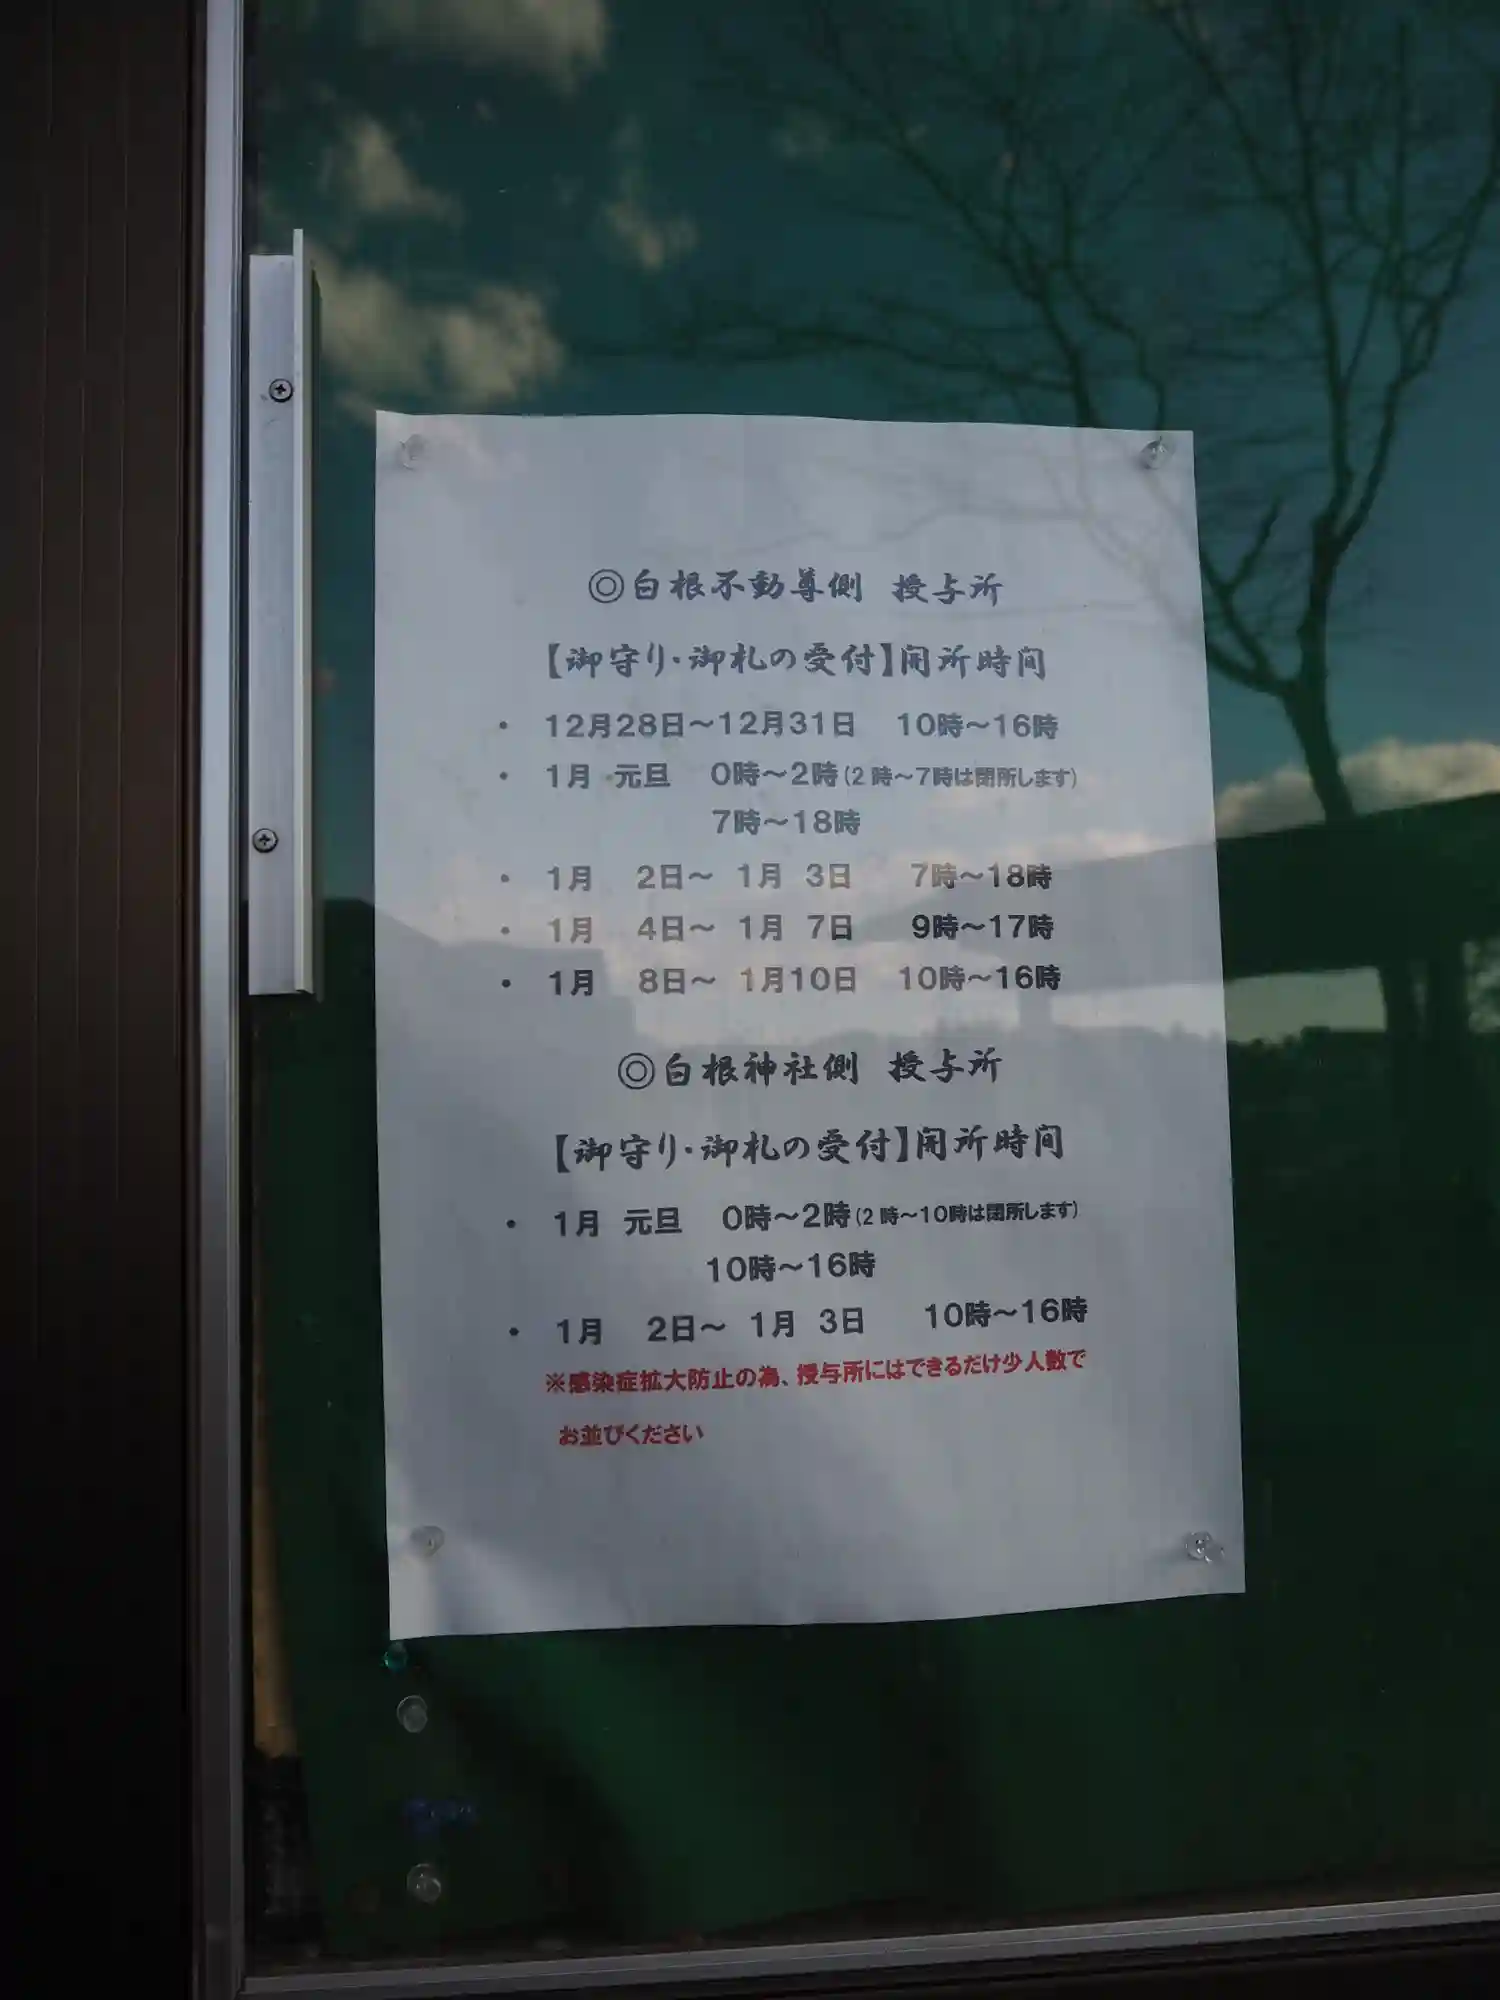 ◎白根不動尊側 授与所
【御守り・御札の受付】開所時間
・ 12月28日～12月31日 10時～16時
・ 1月 元旦 0時～2時(2時～7時は閉所します)
7時～18時
・ 1月 2日～ 1月 3日 7時～18時
・ 1月 4日～ 1月 7日 9時～17時
・ 1月 8日～ 1月10日 10時～16時
◎白根神社側 授与所
【御守り・御札の受付】開所時間
・ 1月 元旦 0時～2時(2時～10時は閉所します)
10時～16時
・ 1月 2日～ 1月 3日 10時～16時
※感染症拡大防止の為、授与所にはできるだけ少人数で
お並びください